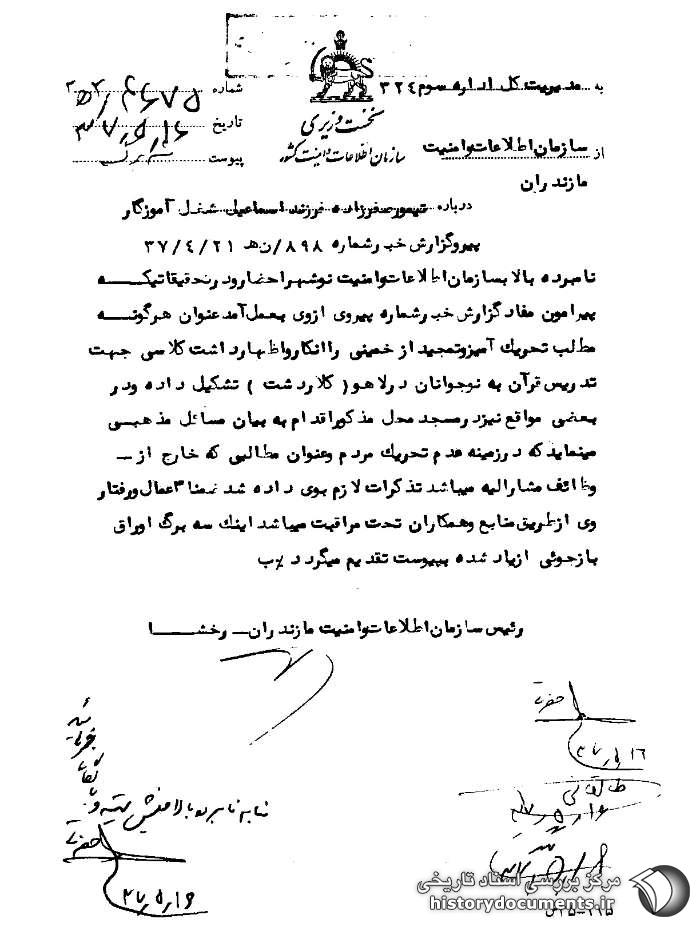 به مدیریت کل اداره سوم ۳۲۴
شماره
تاریخ
نخست وزیری
سازمان اطلاعات و امنیت کشور
از سازمان اطلاعات و امنیت
پیوست
مازندران
درباره تیمور صفرزاده فرزند اسماعیل شغل آموزگار
پیرو گزارش خبر شماره ۸۹۸/ن ه‍ ۳۷/۴/۲۱
نامبرده بالا بسازمان اطلاعات و امنیت نوشهر احضار و در تحقیقاتیکه
پیرامون مفاد گزارش خبر شماره پیروی ازوی بعمل آمد عنوان هرگونه
مطالب تحریک آمیز و تمجید از خمینی را انکار و اظهار داشت کلاسی جهت
تدریس قرآن به نوجوانان در لاهو ( کلاردشت ) تشکیل داده و در
بعضی مواقع نیز در مسجد محل مذکور اقدام به بیان مسائل مذهبی
مینماید که در زمینه عدم تحریک مردم و عنوان مطالبی که خارج از ـ
وظائف مشارالیه میباشد تذکرات لازم بوی داده شد ضمنا اعمال و رفتار
وی از طریق منابع و همکاران تحت مراقبت میباشد اینک سه برگ اوراق
بازجوئی از یاد شده بپیوست تقدیم میگردد
رئیس سازمان اطلاعات و امنیت مازندران ـ رخشا
مرکز بررسی اسناد تاریخی
historydocuments.ir